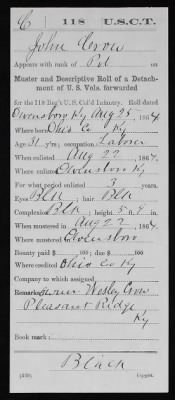 C | 118 | U.S.C.T.
John Crow
Appears with rank of Pvt on
Muster and Descriptive Roll of a Detach-
ment of U. S. Vols. forwarded
for the 118 Reg't U.S. Col'd Infantry. Roll dated
Owensboro Ky Aug 25, 1864
Where born Ohio Co Ky
Age 31 y'rs; occupation Laborer
When enlisted Aug 22, 1864
Where enlisted Owensboro Ky
For what period enlisted 3 years.
Eyes Blk; hair Blk
Complexion Blk; height 5 ft. 9 in.
When mustered in Aug 22, 1864
Where mustered Owensboro
Bounty paid $ 100; due $ 100
Where credited Ohio Co Ky
Company to which assigned
Remarks: Owner Wesley Crow
Pleasant Ridge
Ky
Book mark:
Black
(339) Copyist.